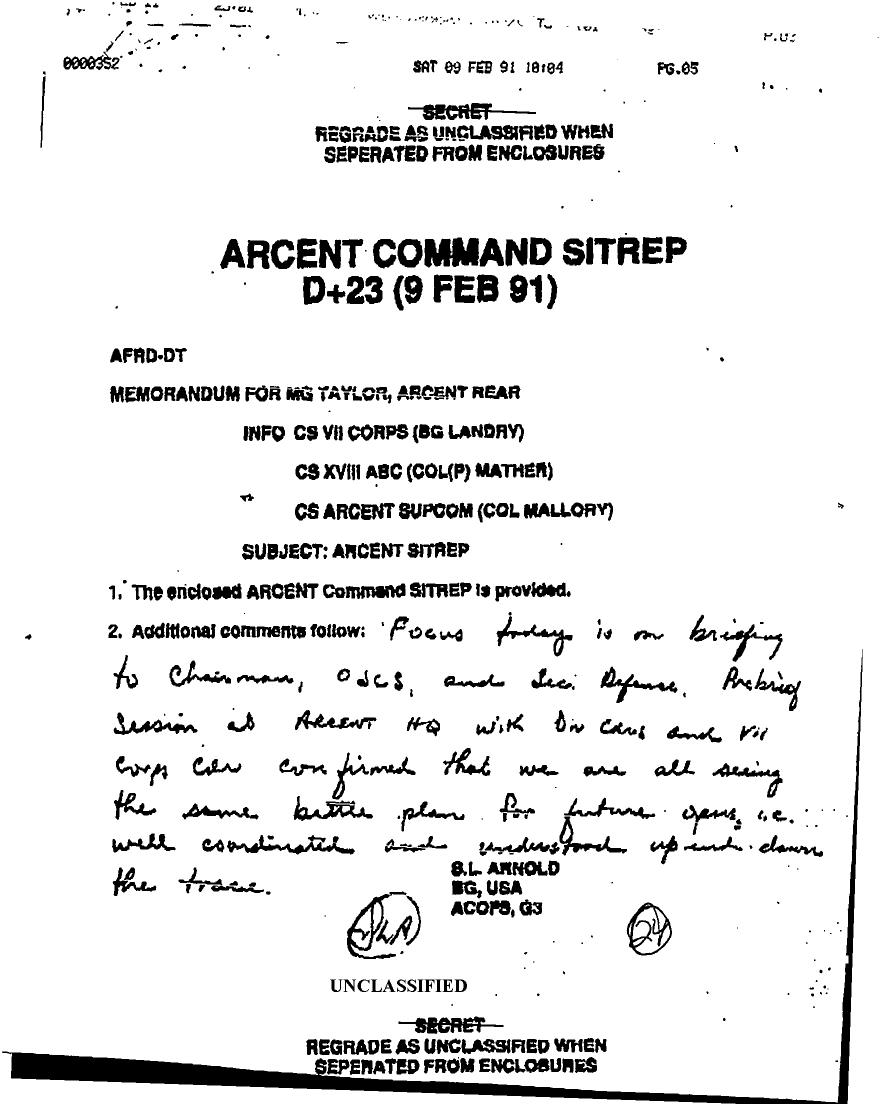 0000352 SAT 09 FEB 91 18:04 PG.05
SECRET
REGRADE AS UNCLASSIFIED WHEN
SEPERATED FROM ENCLOSURES
ARCENT COMMAND SITREP
D+23 (9 FEB 91)
AFRD-DT
MEMORANDUM FOR MG TAYLOR, ARCENT REAR
INFO CS VII CORPS (BG LANDRY)
CS XVIII ABC (COL(P) MATHER)
CS ARCENT SUPCOM (COL MALLORY)
SUBJECT: ARCENT SITREP
1. The enclosed ARCENT Command SITREP is provided.
2. Additional comments follow: Focus today is on briefing
to Chairman, OJCS, and Sec. Defense. Prebrief
Session at ARCENT HQ with Div Cdrs and VII
Corps Cdr confirmed that we are all seeing
the same battle plan for future opns, i.e.
well coordinated and understood up and down
the trace.
S.L. ARNOLD
BG, USA
ACOFS, G3
SLA
24
UNCLASSIFIED
SECRET
REGRADE AS UNCLASSIFIED WHEN
SEPERATED FROM ENCLOSURES